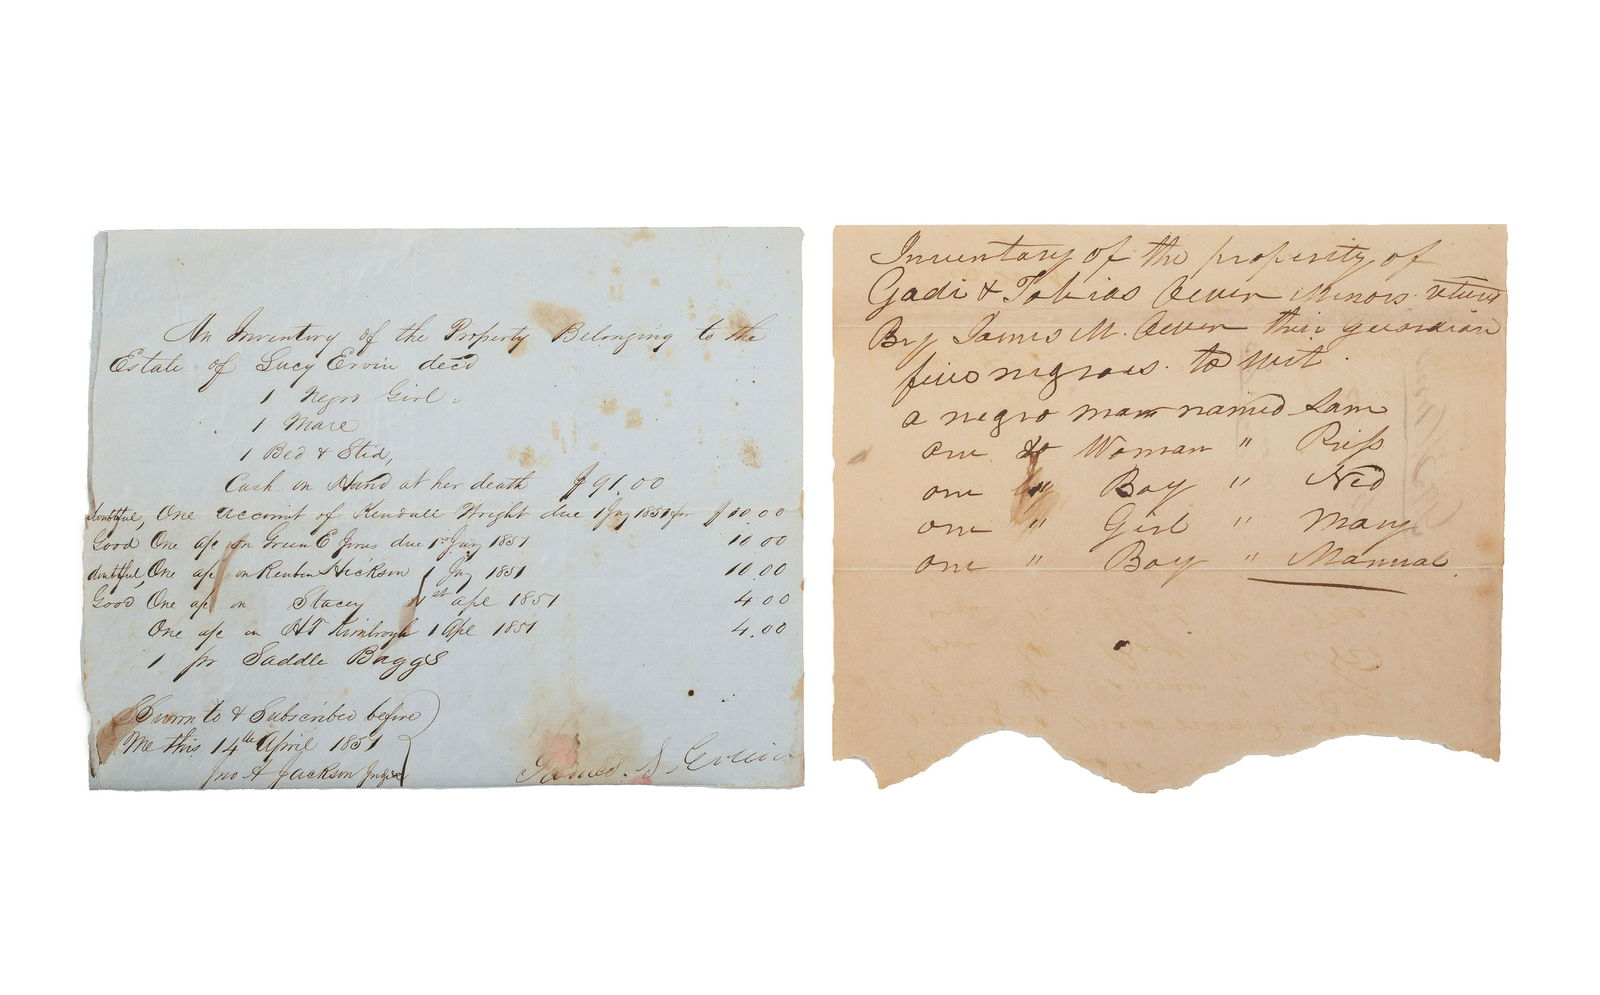 An Inventory of the Property Belonging to the
Estate of Lucy Ervin decd
1 Negro Girl
1 Mare
1 Bed & Sted,
Cash on Hand at her death $91.00
doubtful, One account of Kendall Wright due 1 Jay 1851 for $10.00
Good One a/c on Green E Jones due 1st Jany 1851 10 00
doubtful, One a/c on Reuben Hickson 1 Jay 1851 10.00
Good One a/c on Stacey 1st apl 1851 4.00
One a/c on 1 Apl 1851 4.00
1 pr Saddle Baggs
Sworn to & Subscribed before
Me this 14th April 1851
Jno A Jackson
James S. Ervin
Inventory of the property of
Gadi & Tobias minors
By James M. their guardian
five negroes. to wit
a negro man named Sam
one do Woman " Priss
one " Boy " Ned
one " Girl " Mary
one " Boy " Manual